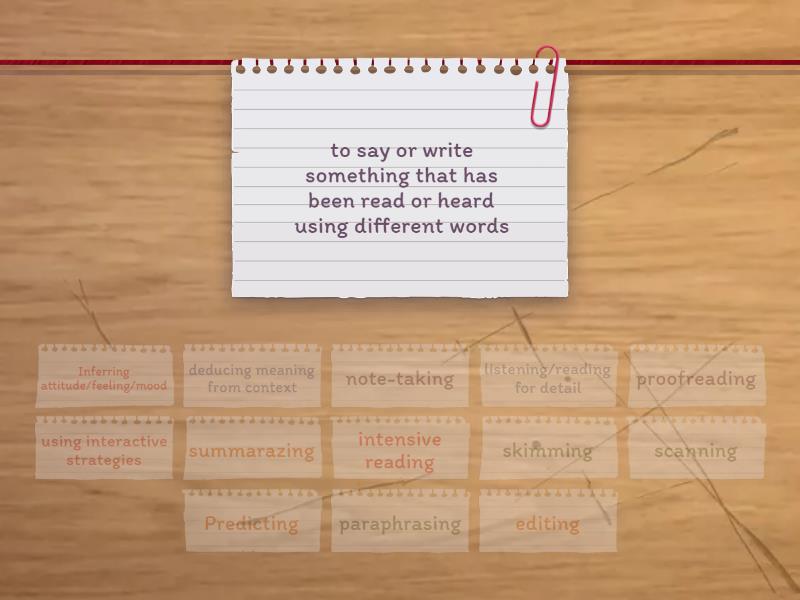 to say or write
something that has
been read or heard
using different words
Inferring
attitude/feeling/mood
deducing meaning
from context
note-taking
listening/reading
for detail
proofreading
using interactive
strategies
summarazing
intensive
reading
skimming
scanning
Predicting
paraphrasing
editing